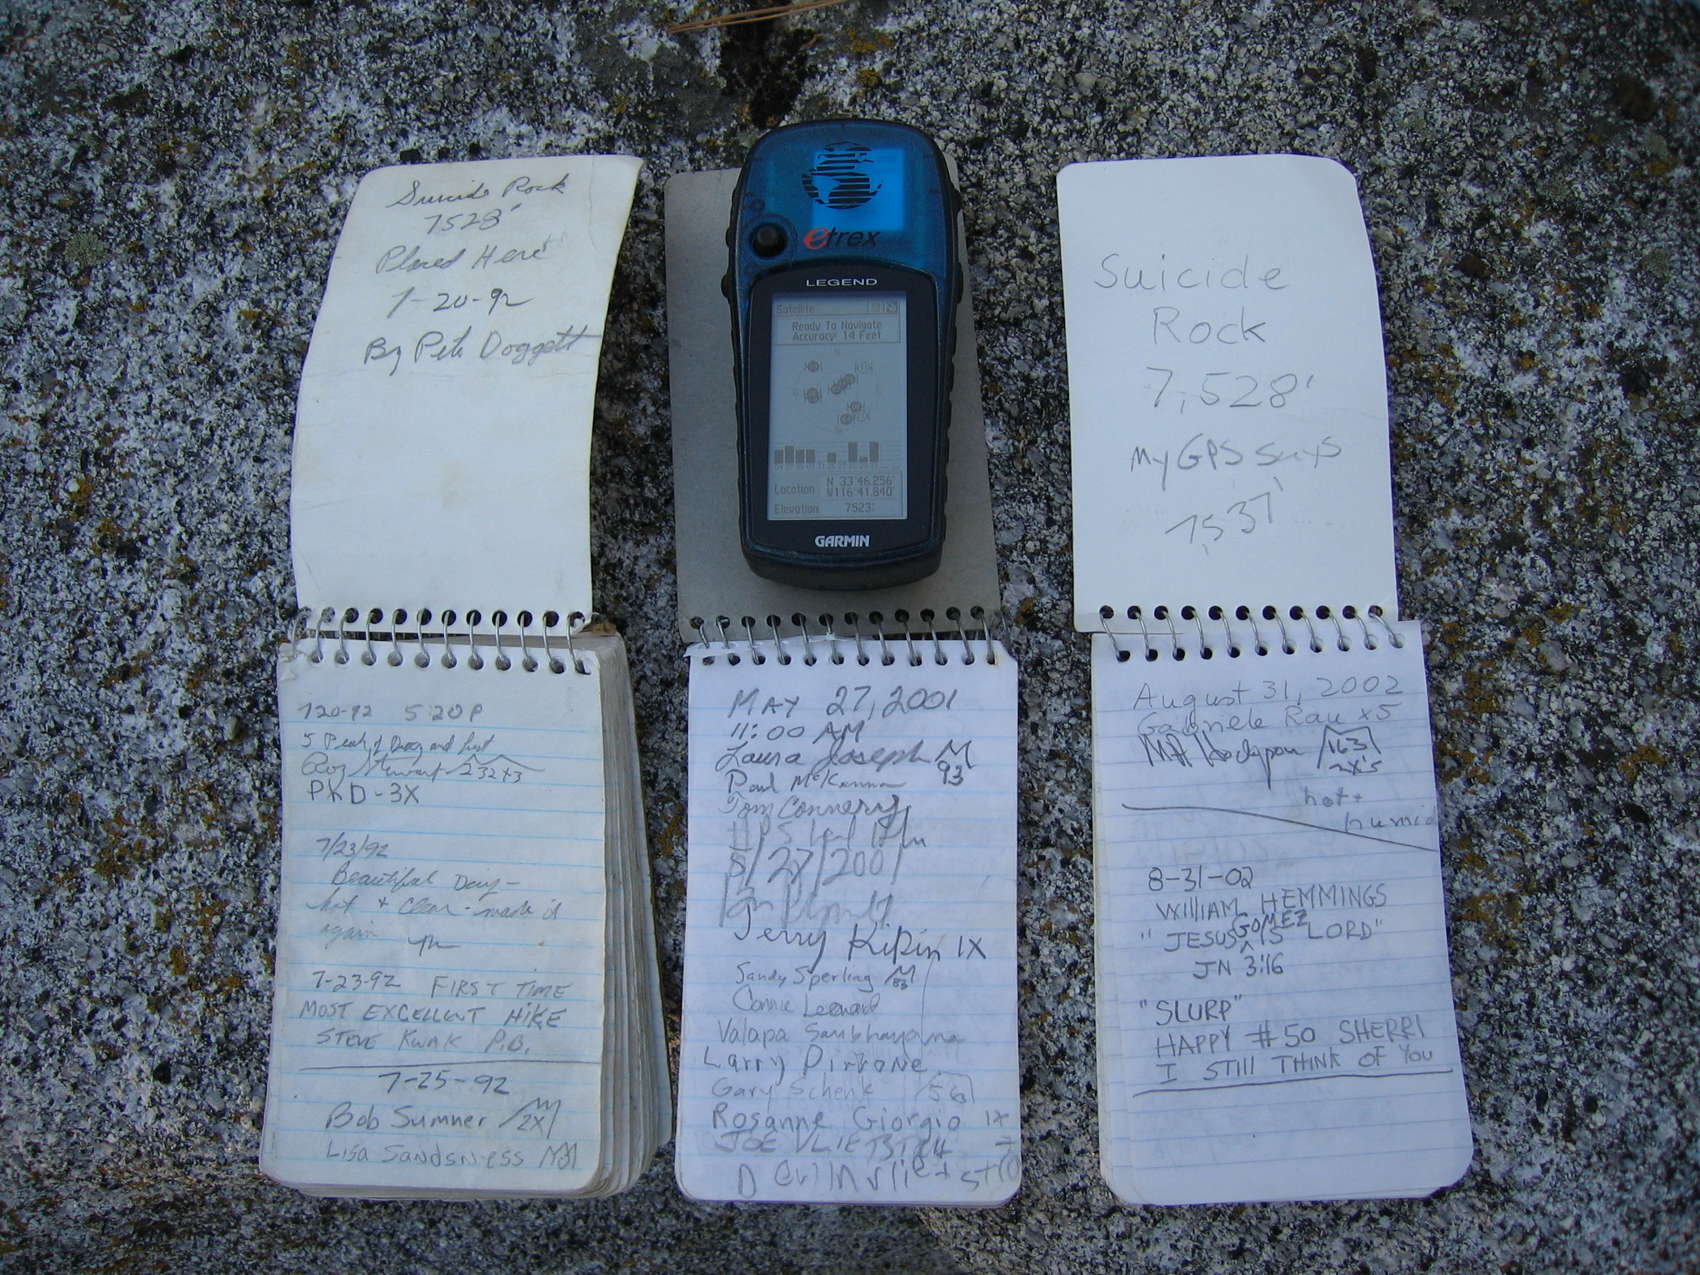 Suicide Rock
7528'
Placed Here
7-20-92
By Pete Doggett
7-20-92 5:20P
PKD-3X
7/23/92
Beautiful Day-
hot + clear - made it
again
7-23-92 FIRST TIME
MOST EXCELLENT HIKE
STEVE KWAK P.B.
7-25-92
Bob Sumner 2X
LISA SANDSNESS
etrex
LEGEND
Satellite
Ready To Navigate
Accuracy: 14 Feet
Location
N 33°46.256'
W116°41.840'
Elevation: 7523
GARMIN
MAY 27, 2001
11:00 AM
Laura Joseph
93
Paul McKenna
Tom Connery
5/27/2001
Jerry Kipin 1X
Sandy Sperling
Connie Leonard
Valapa
Larry Pirrone
Gary Schenk
Rosanne Giorgio 1x
JOE
Suicide
Rock
7,528'
My GPS says
7,537'
August 31, 2002
Gabriele Rau x5
163
2X's
hot +
humid
8-31-02
WILLIAM HEMMINGS
"JESUS GOMEZ IS LORD"
JN 3:16
"SLURP"
HAPPY #50 SHERRI
I STILL THINK OF YOU